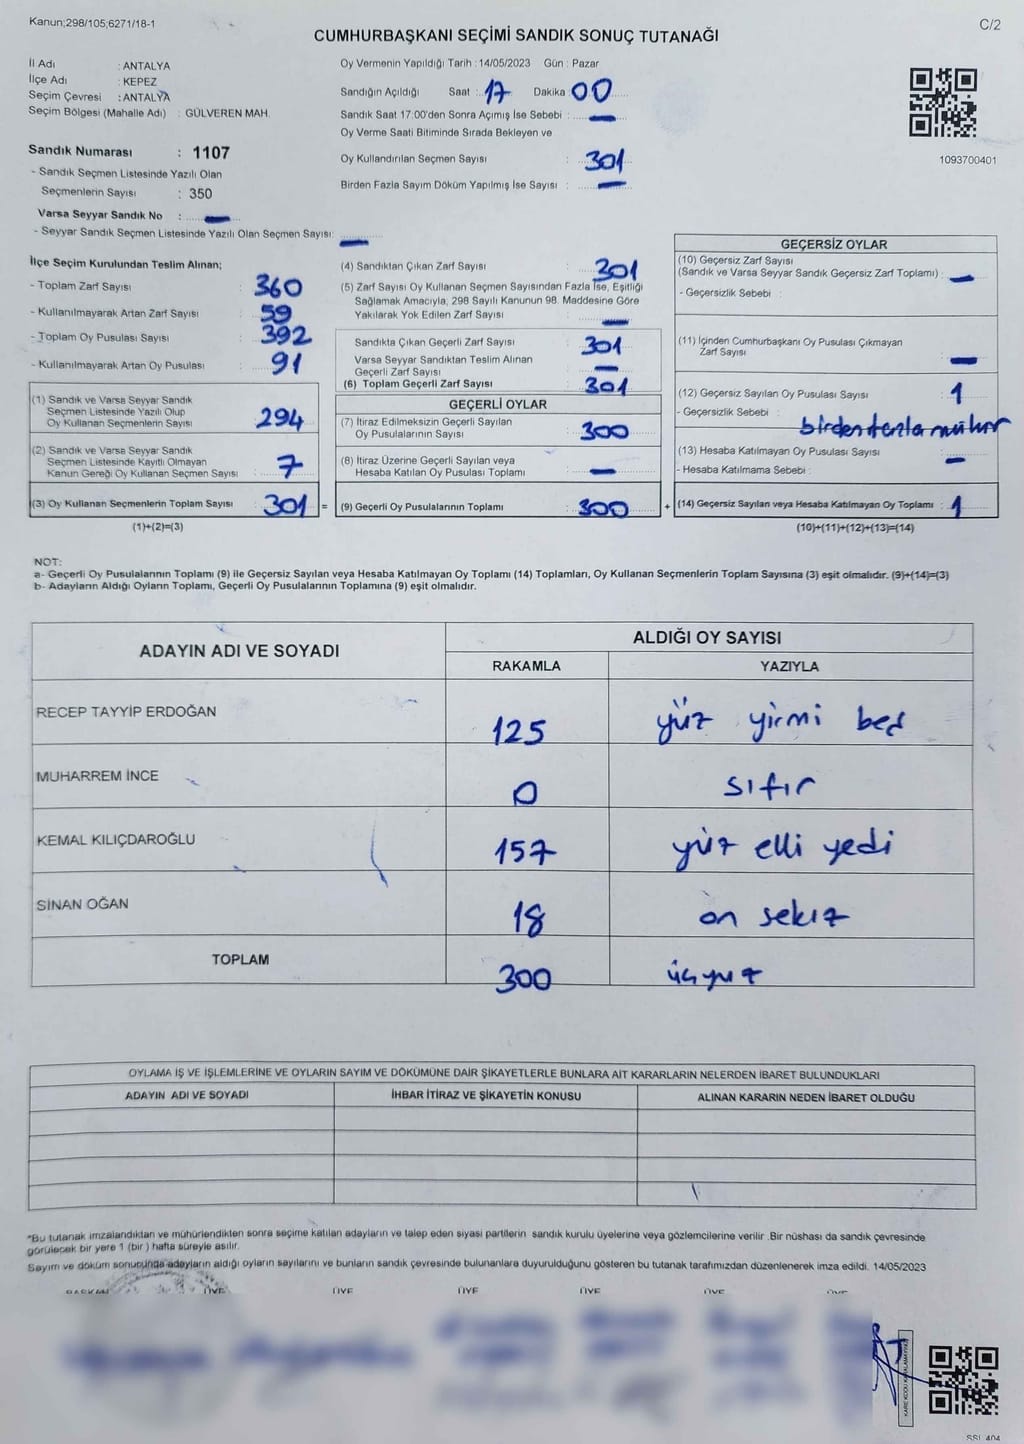 Kanun;298/105;6271/18-1
C/2
CUMHURBAŞKANI SEÇİMİ SANDIK SONUÇ TUTANAĞI
İl Adı : ANTALYA
İlçe Adı : KEPEZ
Seçim Çevresi : ANTALYA
Seçim Bölgesi (Mahalle Adı) : GÜLVEREN MAH.
Sandık Numarası : 1107
- Sandık Seçmen Listesinde Yazılı Olan
Seçmenlerin Sayısı : 350
Varsa Seyyar Sandık No : —
- Seyyar Sandık Seçmen Listesinde Yazılı Olan Seçmen Sayısı: —
Oy Vermenin Yapıldığı Tarih : 14/05/2023 Gün : Pazar
Sandığın Açıldığı Saat : 17 Dakika 00
Sandık Saat 17:00'den Sonra Açımış İse Sebebi : —
Oy Verme Saati Bitiminde Sırada Bekleyen ve
Oy Kullandırılan Seçmen Sayısı : 301
Birden Fazla Sayım Döküm Yapılmış İse Sayısı : —
1093700401
İlçe Seçim Kurulundan Teslim Alınan;
- Toplam Zarf Sayısı : 360
- Kullanılmayarak Artan Zarf Sayısı : 59
- Toplam Oy Pusulası Sayısı : 392
- Kullanılmayarak Artan Oy Pusulası : 91
(1) Sandık ve Varsa Seyyar Sandık
Seçmen Listesinde Yazılı Olup
Oy Kullanan Seçmenlerin Sayısı : 294
(2) Sandık ve Varsa Seyyar Sandık
Seçmen Listesinde Kayıtlı Olmayan
Kanun Gereği Oy Kullanan Seçmen Sayısı : 7
(3) Oy Kullanan Seçmenlerin Toplam Sayısı 301 =
(1)+(2)=(3)
(4) Sandıktan Çıkan Zarf Sayısı : 301
(5) Zarf Sayısı Oy Kullanan Seçmen Sayısından Fazla İse, Eşitliği
Sağlamak Amacıyla, 298 Sayılı Kanunun 98. Maddesine Göre
Yakılarak Yok Edilen Zarf Sayısı : —
Sandıkta Çıkan Geçerli Zarf Sayısı : 301
Varsa Seyyar Sandıktan Teslim Alınan
Geçerli Zarf Sayısı : —
(6) Toplam Geçerli Zarf Sayısı : 301
GEÇERLİ OYLAR
(7) İtiraz Edilmeksizin Geçerli Sayılan
Oy Pusulalarının Sayısı : 300
(8) İtiraz Üzerine Geçerli Sayılan veya
Hesaba Katılan Oy Pusulası Toplamı : —
(9) Geçerli Oy Pusulalarının Toplamı : 300 +
GEÇERSİZ OYLAR
(10) Geçersiz Zarf Sayısı
(Sandık ve Varsa Seyyar Sandık Geçersiz Zarf Toplamı) : —
- Geçersizlik Sebebi :
(11) İçinden Cumhurbaşkanı Oy Pusulası Çıkmayan
Zarf Sayısı : —
(12) Geçersiz Sayılan Oy Pusulası Sayısı : 1
- Geçersizlik Sebebi : birden fazla mühür
(13) Hesaba Katılmayan Oy Pusulası Sayısı : —
- Hesaba Katılmama Sebebi :
(14) Geçersiz Sayılan veya Hesaba Katılmayan Oy Toplamı : 1
(10)+(11)+(12)+(13)=(14)
NOT:
a- Geçerli Oy Pusulalarının Toplamı (9) ile Geçersiz Sayılan veya Hesaba Katılmayan Oy Toplamı (14) Toplamları, Oy Kullanan Seçmenlerin Toplam Sayısına (3) eşit olmalıdır. (9)+(14)=(3)
b- Adayların Aldığı Oyların Toplamı, Geçerli Oy Pusulalarının Toplamına (9) eşit olmalıdır.
ADAYIN ADI VE SOYADI
ALDIĞI OY SAYISI
RAKAMLA YAZIYLA
RECEP TAYYİP ERDOĞAN 125 yüz yirmi beş
MUHARREM İNCE 0 sıfır
KEMAL KILIÇDAROĞLU 157 yüz elli yedi
SİNAN OĞAN 18 on sekiz
TOPLAM 300 üçyüz
OYLAMA İŞ VE İŞLEMLERİNE VE OYLARIN SAYIM VE DÖKÜMÜNE DAİR ŞİKAYETLERLE BUNLARA AİT KARARLARIN NELERDEN İBARET BULUNDUKLARI
ADAYIN ADI VE SOYADI İHBAR İTİRAZ VE ŞİKAYETİN KONUSU ALINAN KARARIN NEDEN İBARET OLDUĞU
*Bu tutanak imzalandıktan ve mühürlendikten sonra seçime katılan adayların ve talep eden siyasi partilerin sandık kurulu üyelerine veya gözlemcilerine verilir .Bir nüshası da sandık çevresinde
görülecek bir yere 1 (bir ) hafta süreyle asılır.
Sayım ve döküm sonucunda adayların aldığı oyların sayılarını ve bunların sandık çevresinde bulunanlara duyurulduğunu gösteren bu tutanak tarafımızdan düzenlenerek imza edildi. 14/05/2023
BAŞKAN ÜYE ÜYE ÜYE ÜYE ÜYE ÜYE